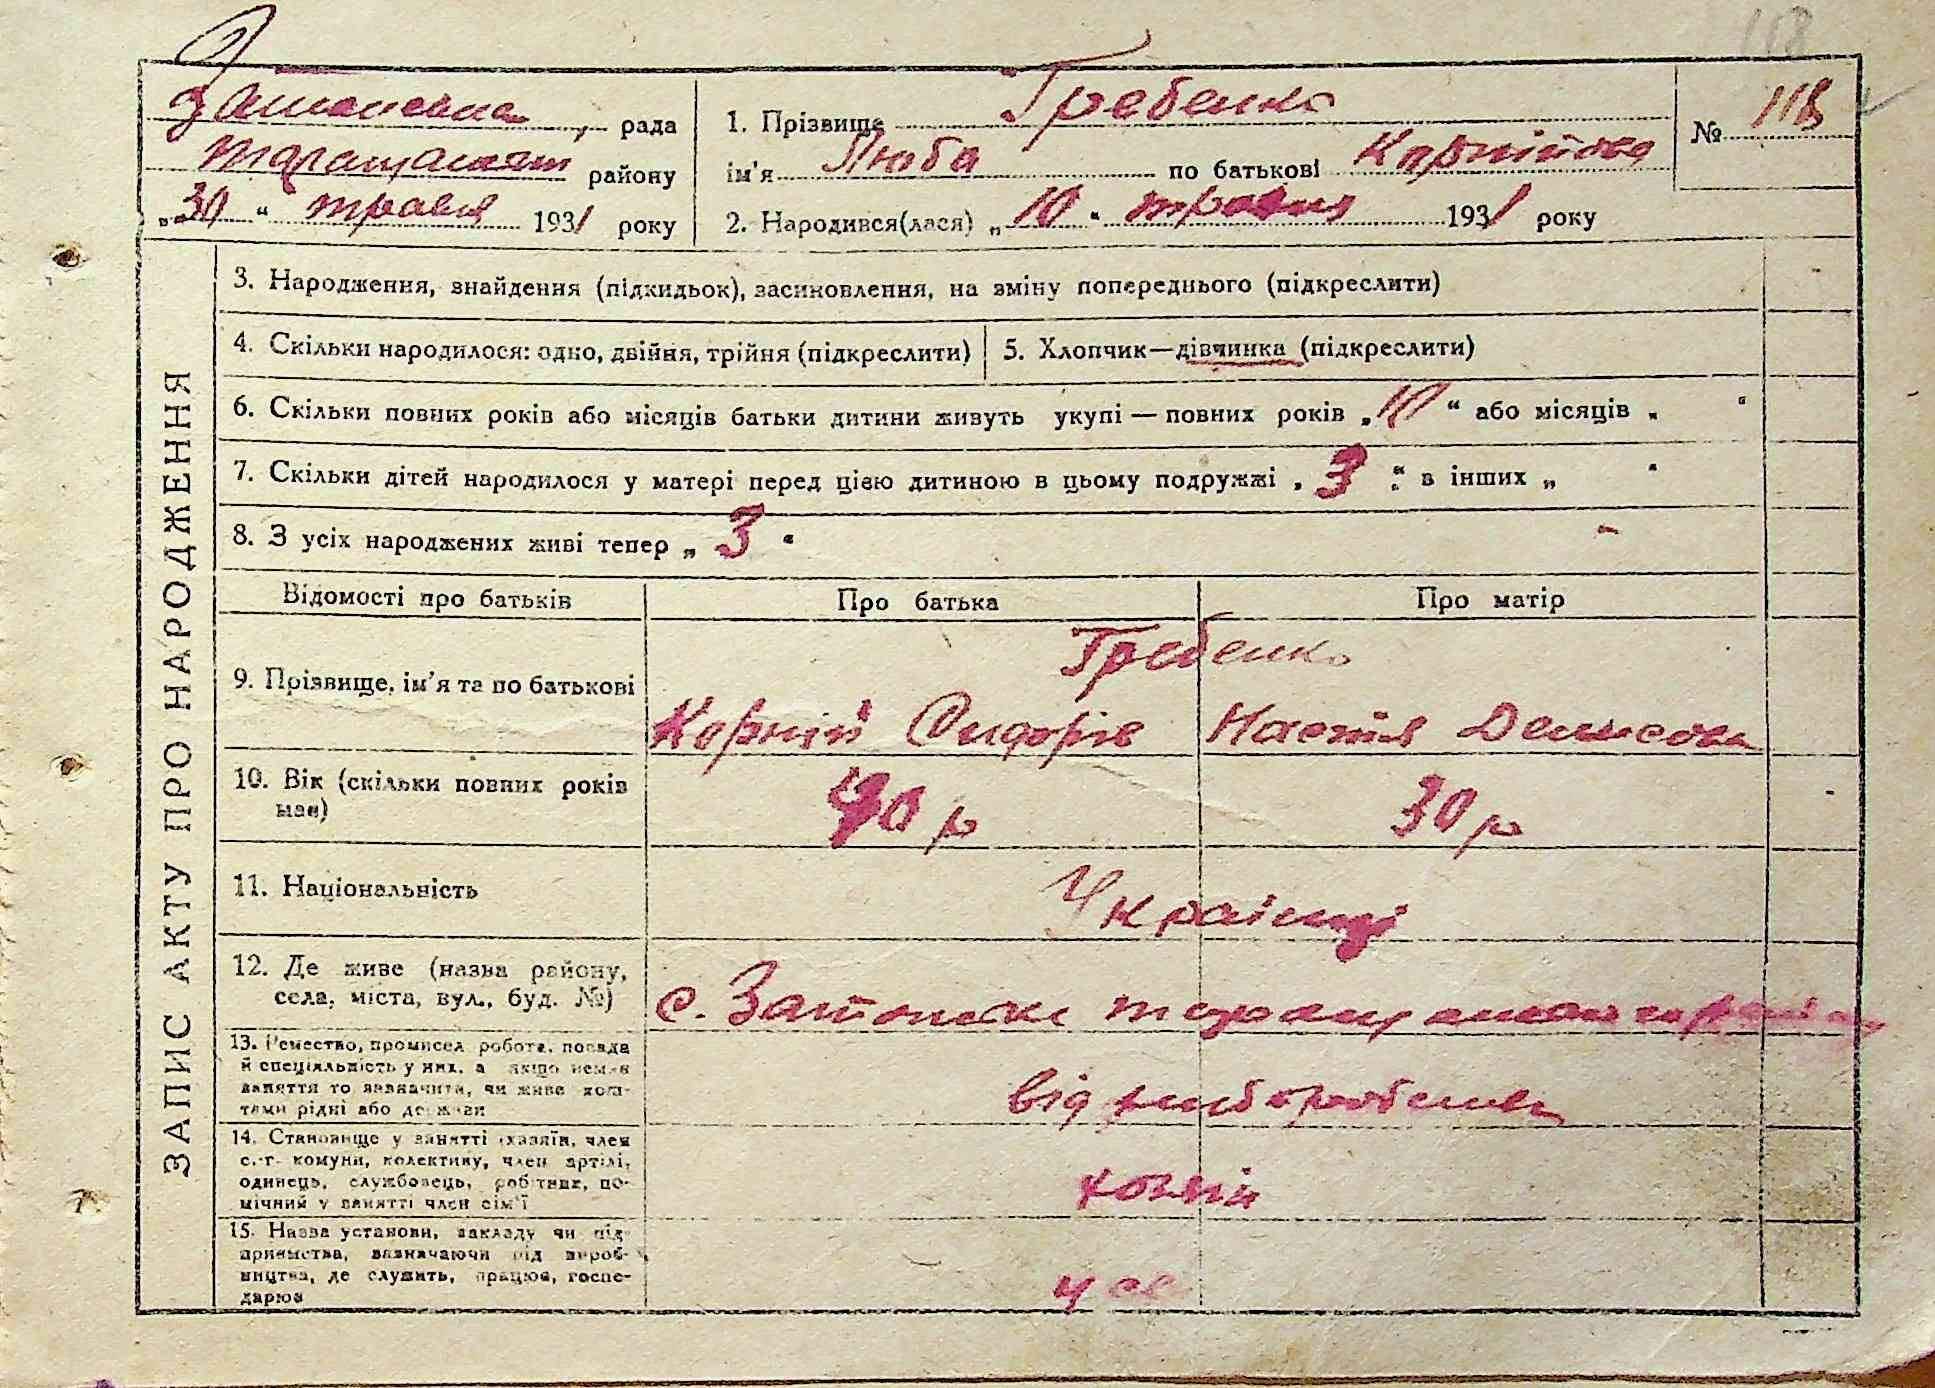 118
рада
Таращанськ району
„30“ травня 1931 року
1. Прізвище Гребенко
№ 118
ім'я Люба по батькові Корнійова
2. Народився(лася) „10“ травня 1931 року
ЗАПИС АКТУ ПРО НАРОДЖЕННЯ
3. Народження, знайдення (підкидьок), засиновлення, на зміну попереднього (підкреслити)
4. Скільки народилося: одно, двійня, трійня (підкреслити)
5. Хлопчик—дівчинка (підкреслити)
6. Скільки повних років або місяців батьки дитини живуть укупі — повних років „10“ або місяців „ “
7. Скільки дітей народилося у матері перед цією дитиною в цьому подружжі „3“ в інших „ “
8. З усіх народжених живі тепер „3“ -
Відомості про батьків
Про батька
Про матір
9. Прізвище, ім'я та по батькові
Гребенко
Корній Сидорів
Настя Денисова
10. Вік (скільки повних років
має)
р
30 р
11. Національність
Українці
12. Де живе (назва району,
села, міста, вул., буд. №)
с.
13. Ремество, промисел робота, посада
й спеціяльність у них, а якщо немає
заняття то зазначити, чи живе кош-
тами рідні або держави
від
14. Становище у занятті (хазяїн, член
с.-г. комуни, колективу, член артілі,
одинець, службовець, робітник, по-
мічний у занятті член сім'ї
хозяїн
15. Назва установи, закладу чи під-
приємства, зазначаючи рід вироб-
ництва, де служить, працює, госпо-
дарює
у се